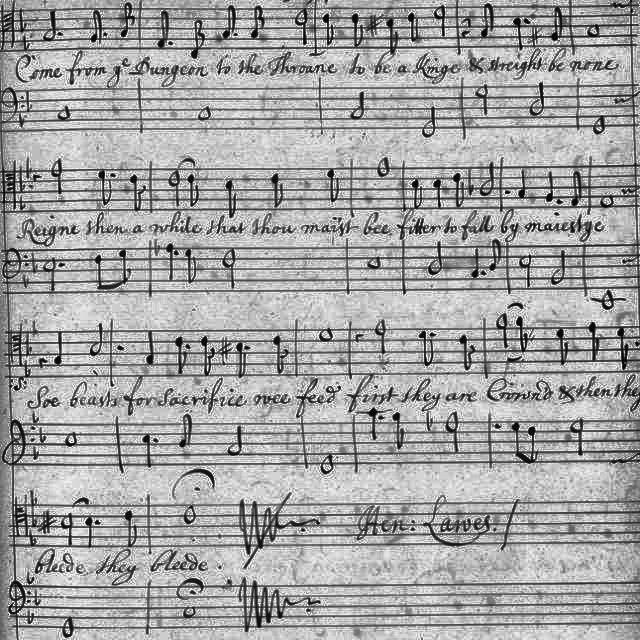 Come from yᵉ Dungeon to the Throane to be a Kinge & streight be none
Reigne then a while that thou maist bee fitter to fall by maiestye
Soe beasts for Sacrifice wee feed first they are Crownd & then they
bleede they bleede.
Hen: Lawes.